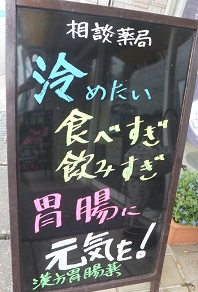 相談薬局
冷めたい
食べすぎ
飲みすぎ
胃腸に
元気を!
漢方胃腸薬